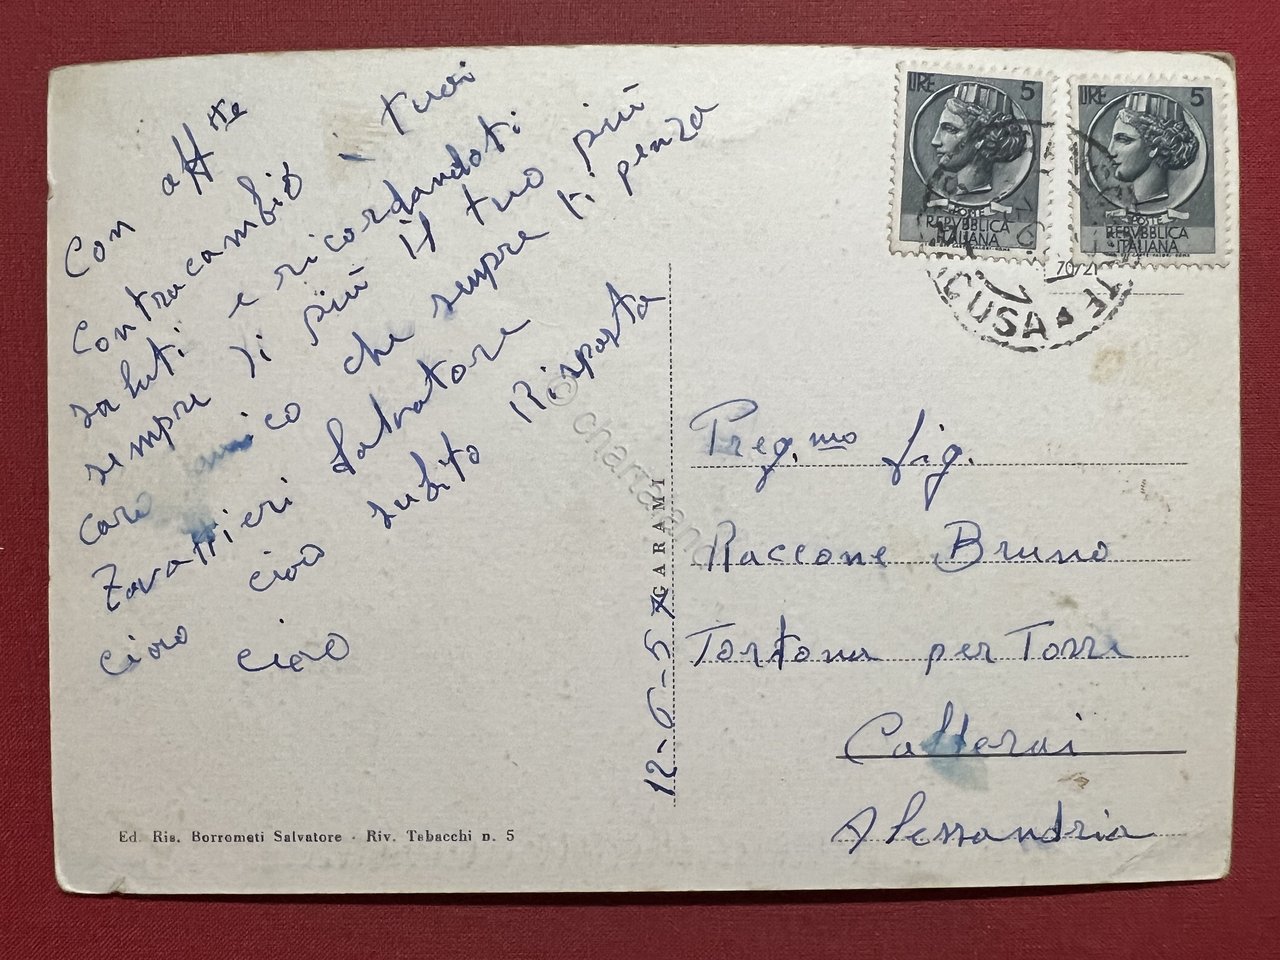 Con aff.tte
Contracambio i tuoi
saluti e ricordandoti
sempre di più il tuo più
caro amico che sempre ti penza
Zavattieri Salvatore
ciao ciao subito Risposta
ciao
12-6-57
GARAMI
Ed. Ris. Borrometi Salvatore - Riv. Tabacchi n. 5
LIRE 5
POSTE
REPVBBLICA
ITALIANA
LIRE 5
POSTE
REPVBBLICA
ITALIANA
70/21
Preg.mo Sig.
Raccone Bruno
Tortona per Torre
Calderai
Alessandria
© charta